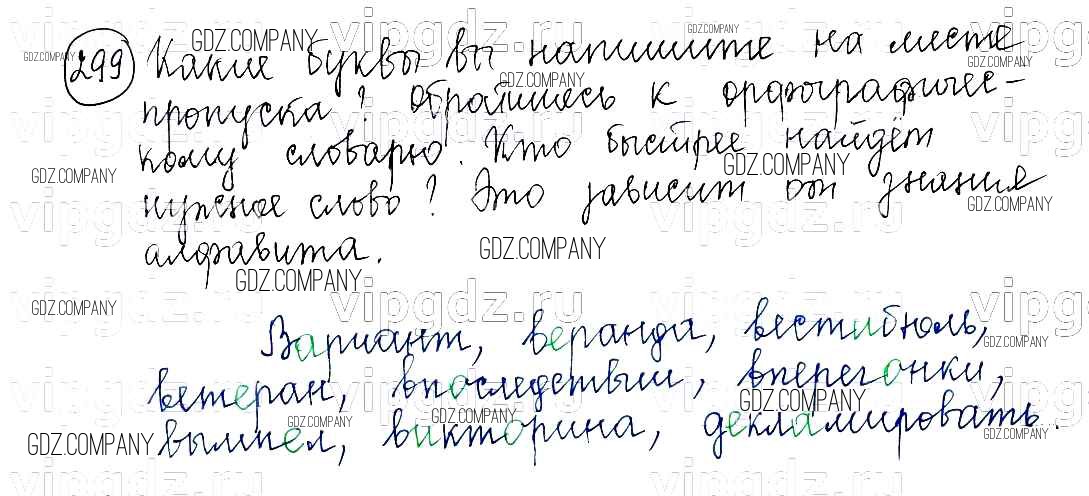 299 Какие буквы вы напишите на месте
пропуска? Обратитесь к орфографичес-
кому словарю. Кто быстрее найдёт
нужное слово? Это зависит от знания
алфавита.
Вариант, веранда, вестибюль,
ветеран, впоследствии, вперегонки,
вымпел, викторина, декламировать.
GDZ.COMPANY
vipgdz.ru